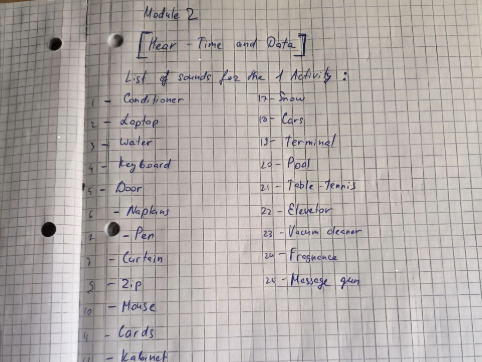 Module 2
[Hear - Time and Data]
List of sounds for the 1 Activity :
1 - Conditioner
2 - Laptop
3 - Water
4 - Keyboard
5 - Door
6 - Napkins
7 - Pen
- Curtain
9 - Zip
10 - Mouse
11 - Cards
- Kabinet
17 - Snow
18 - Cars
19 - Terminal
20 - Pool
21 - Table-Tennis
22 - Elevator
23 - Vacum cleaner
24 - Fragnance
25 - Message gun